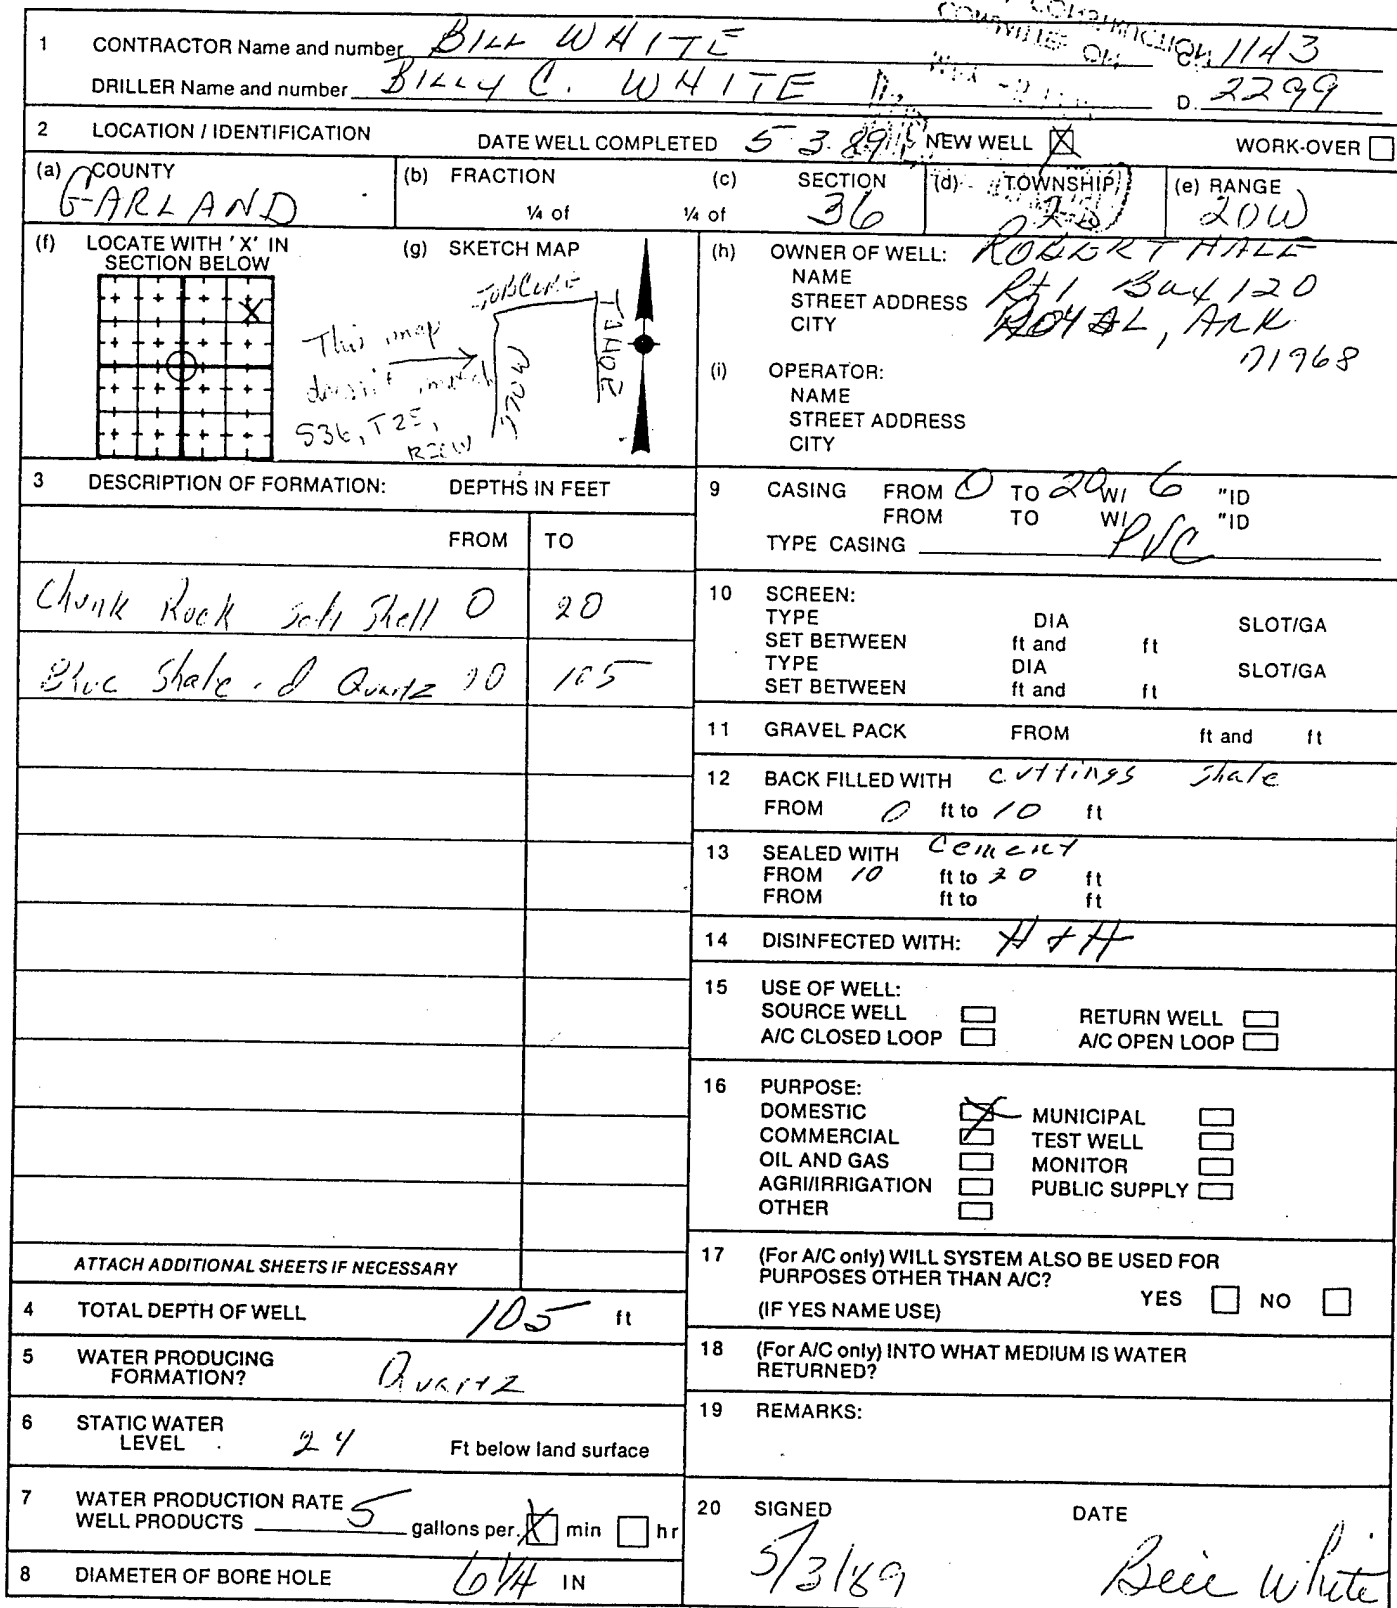 1 CONTRACTOR Name and number BILL WHITE C 1143
DRILLER Name and number BILLY C. WHITE D. 2299
2 LOCATION / IDENTIFICATION DATE WELL COMPLETED 5 3 89 NEW WELL X WORK-OVER
(a) COUNTY (b) FRACTION (c) SECTION (d) TOWNSHIP (e) RANGE
GARLAND ¼ of ¼ of 36 20W
(f) LOCATE WITH 'X' IN SECTION BELOW
X
(g) SKETCH MAP
This map
doesn't match
S36,
(h) OWNER OF WELL: ROBERT HALE
NAME
STREET ADDRESS Rt 1 Box 120
CITY ROYAL, ARK
71968
(i) OPERATOR:
NAME
STREET ADDRESS
CITY
3 DESCRIPTION OF FORMATION: DEPTHS IN FEET
FROM TO
Chunk Rock Soft Shell 0 20
Blue Shale Quartz 20 105
ATTACH ADDITIONAL SHEETS IF NECESSARY
4 TOTAL DEPTH OF WELL 105 ft
5 WATER PRODUCING
FORMATION? Quartz
6 STATIC WATER
LEVEL 24 Ft below land surface
7 WATER PRODUCTION RATE
WELL PRODUCTS 5 gallons per. X min hr
8 DIAMETER OF BORE HOLE 6 1/4 IN
9 CASING FROM 0 TO 20 W/ 6 "ID
FROM TO W/ "ID
TYPE CASING PVC
10 SCREEN:
TYPE DIA SLOT/GA
SET BETWEEN ft and ft
TYPE DIA SLOT/GA
SET BETWEEN ft and ft
11 GRAVEL PACK FROM ft and ft
12 BACK FILLED WITH cuttings shale
FROM 0 ft to 10 ft
13 SEALED WITH Cement
FROM 10 ft to 20 ft
FROM ft to ft
14 DISINFECTED WITH: H+H
15 USE OF WELL:
SOURCE WELL RETURN WELL
A/C CLOSED LOOP A/C OPEN LOOP
16 PURPOSE:
DOMESTIC X MUNICIPAL
COMMERCIAL TEST WELL
OIL AND GAS MONITOR
AGRI/IRRIGATION PUBLIC SUPPLY
OTHER
17 (For A/C only) WILL SYSTEM ALSO BE USED FOR
PURPOSES OTHER THAN A/C?
(IF YES NAME USE) YES NO
18 (For A/C only) INTO WHAT MEDIUM IS WATER
RETURNED?
19 REMARKS:
20 SIGNED DATE
5/3/89 Bill White